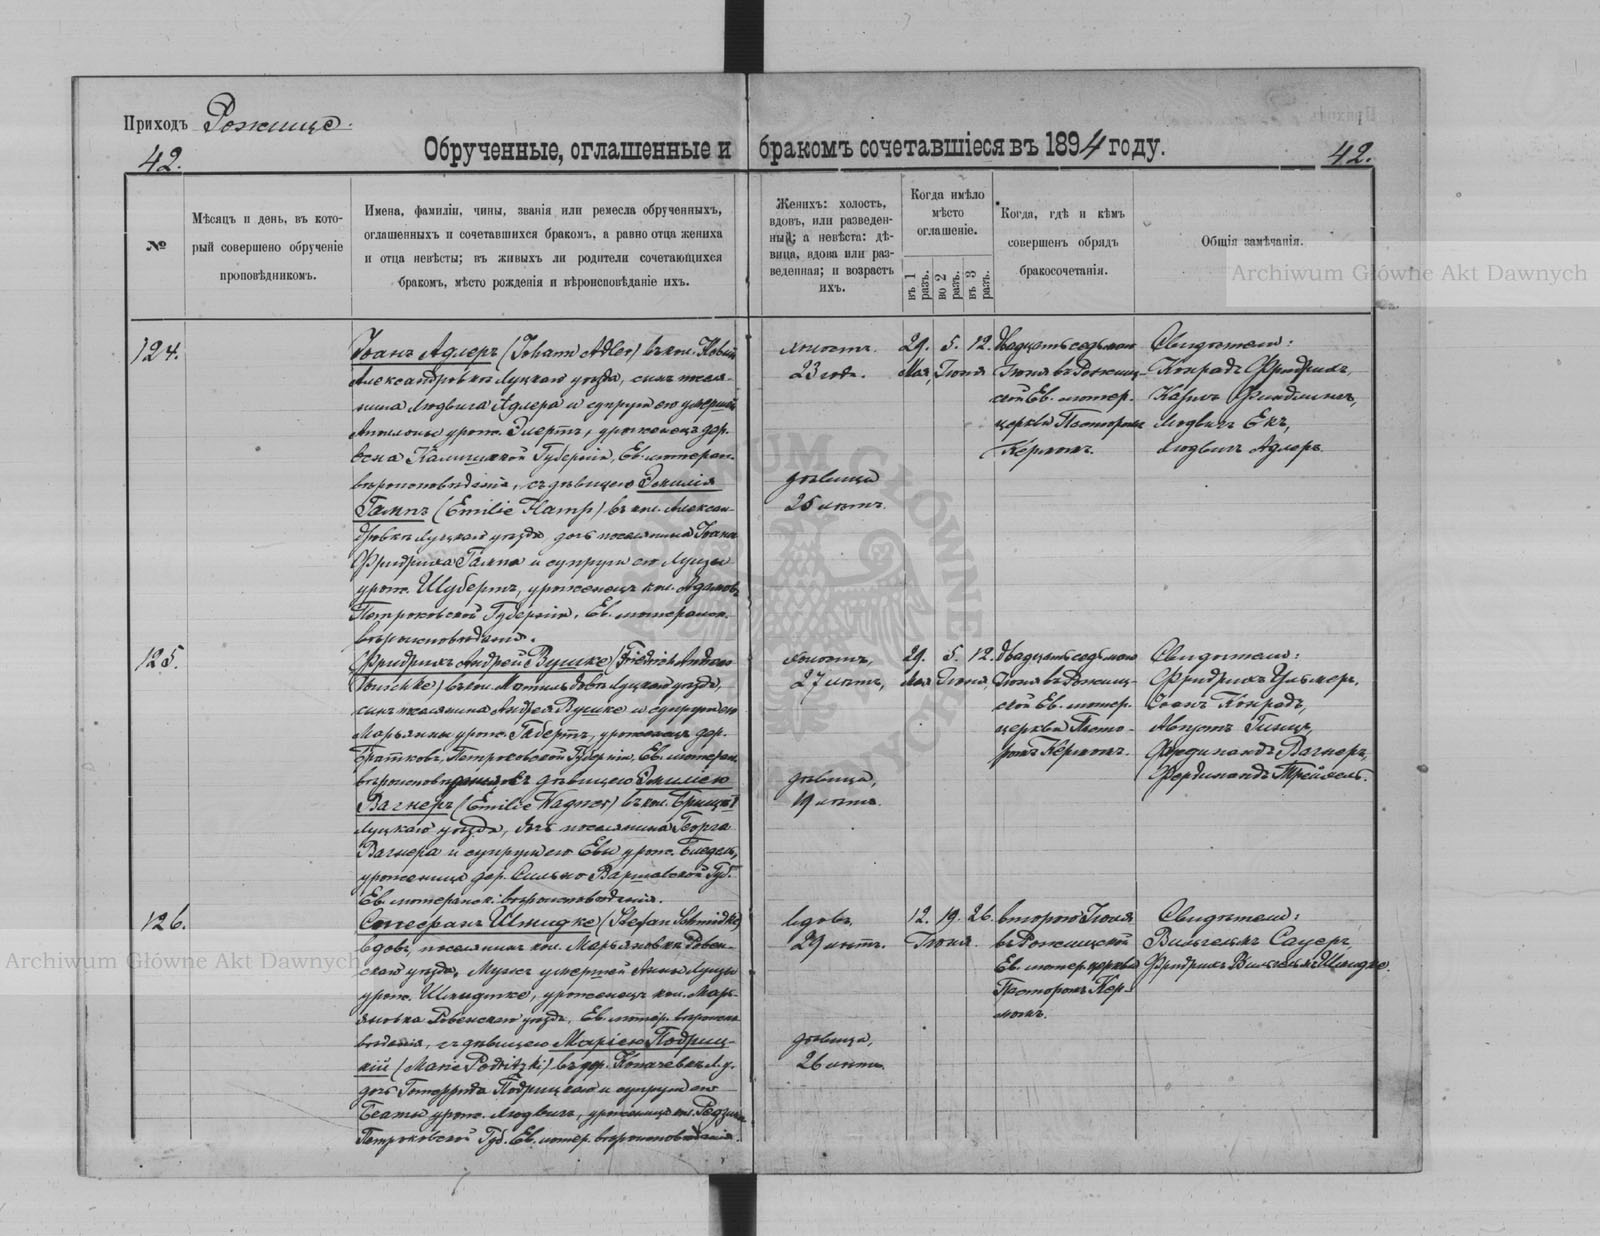 Приходъ Рожище.
42.
Обрученные, оглашенные и бракомъ сочетавшіеся въ 1894 году.
42.
№
Мѣсяцъ и день, въ кото-
рый совершено обрученіе
проповѣдникомъ.
Имена, фамиліи, чины, званія или ремесла обрученныхъ,
оглашенныхъ и сочетавшихся бракомъ, а равно отца жениха
и отца невѣсты; въ живыхъ ли родители сочетающихся
бракомъ, мѣсто рожденія и вѣроисповѣданіе ихъ.
Женихъ: холостъ,
вдовъ, или разведен-
ный; а невѣста: дѣ-
вица, вдова или раз-
веденная; и возрастъ
ихъ.
Когда имѣло
мѣсто
оглашеніе.
въ 1 разъ.
во 2 разъ.
въ 3 разъ.
Когда, гдѣ и кѣмъ
совершенъ обрядъ
бракосочетанія.
Общія замѣчанія.
124.
Іоанъ Адлеръ (Johann Adler) въ кол. Новый
Александровка Луцкаго уѣзда, сынъ поселя-
нина Людвига Адлера и супруги его умершей
урож. Эмертъ, уроженецъ дер.
Калишской Губерніи, Ев. лютеран.
вѣроисповѣданія, съ дѣвицею Эмилія
Гампъ (Emilie Hamp) въ кол. Алексан-
дровка Луцкаго уѣзда, дочь поселянина Іоана
Фридриха Гампа и супруги его Луизы
урож. Шубертъ, уроженецъ кол. Адамовъ
Петроковской Губерніи, Ев. лютеранск.
вѣроисповѣданія.
холостъ.
23 года.
дѣвица
25 лѣтъ.
29. 5. 12.
Мая, Іюня
Двадцать седьмаго
Іюня въ Рожищ-
ской Ев. лютер.
церкви Пасторомъ
Кёрномъ.
Свидѣтели:
Конрадъ Фридрихъ,
Карлъ
Людвигъ Екъ,
Людвигъ Адлеръ.
125.
Фридрихъ Андрей Вушке (Friedrich Andreas
Wuschke) въ кол. Матильдовъ Луцкаго уѣзда,
сынъ поселянина Андрея Вушке и супруги его
Марьянны урож. Габертъ, уроженецъ дер.
Братковъ, Петроковской Губерніи, Ев. лютеран.
вѣроисповѣданія съ дѣвицею Эмиліею
Вагнеръ (Emilie Wagner) въ кол.
Луцкаго уѣзда, дочь поселянина Георга
Вагнера и супруги его Евы урож.
уроженица дер. Сильно Варшавской Губ.
Ев. лютеранск. вѣроисповѣданія.
холостъ,
27 лѣтъ,
дѣвица,
19 лѣтъ.
29. 5. 12.
Мая Іюня,
Двадцать седьмаго
Іюня въ Рожищ-
ской Ев. лютер.
церкви Пасто-
ромъ Кёрномъ.
Свидѣтели:
Фридрихъ Ульмеръ,
Іоанъ Конрадъ,
Августъ
Фердинандъ Вагнеръ,
Фердинандъ Трейхель.
126.
Стефанъ Шмидке (Stefan Schmidke)
вдовъ, поселянинъ кол. Марьяновка Ровен-
скаго уѣзда, Мужъ умершей Анны Луизы
урож. Шмидтке, уроженецъ кол. Марь-
яновка Ровенскаго уѣзда, Ев. лютер. вѣроиспо-
вѣданія, съ дѣвицею Маріею Подриц-
кій (Marie Podritzki) въ дер. Копачевка Л.у.
дочь Готфрида Подрицкаго и супруги его
Беаты урож. Людвигъ, уроженица кол.
Петроковской Губ. Ев. лютер. вѣроисповѣданія.
вдовъ
29 лѣтъ.
дѣвица,
26 лѣтъ.
12. 19. 26.
Іюня
второго Іюля
въ Рожищской
Ев. лютер. церкви
Пасторомъ Кёр-
номъ.
Свидѣтели:
Вильгельмъ Сауеръ,
Фридрихъ Вильгельмъ Шмидке.
Archiwum Główne Akt Dawnych
Archiwum Główne Akt Dawnych